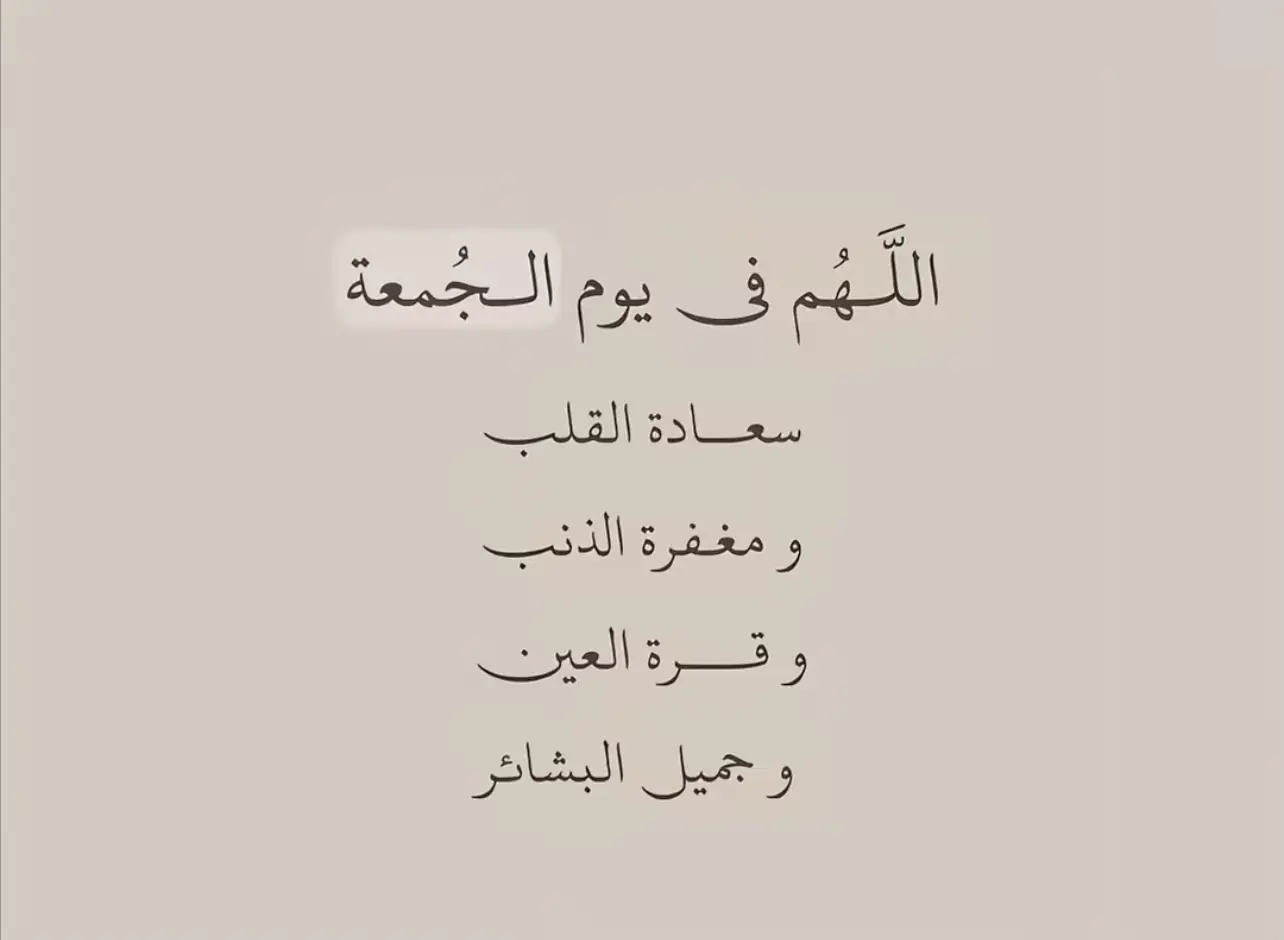 اللَّهُم فى يوم الجُمعة
سعادة القلب
و مغفرة الذنب
و قرة العين
و جميل البشائر